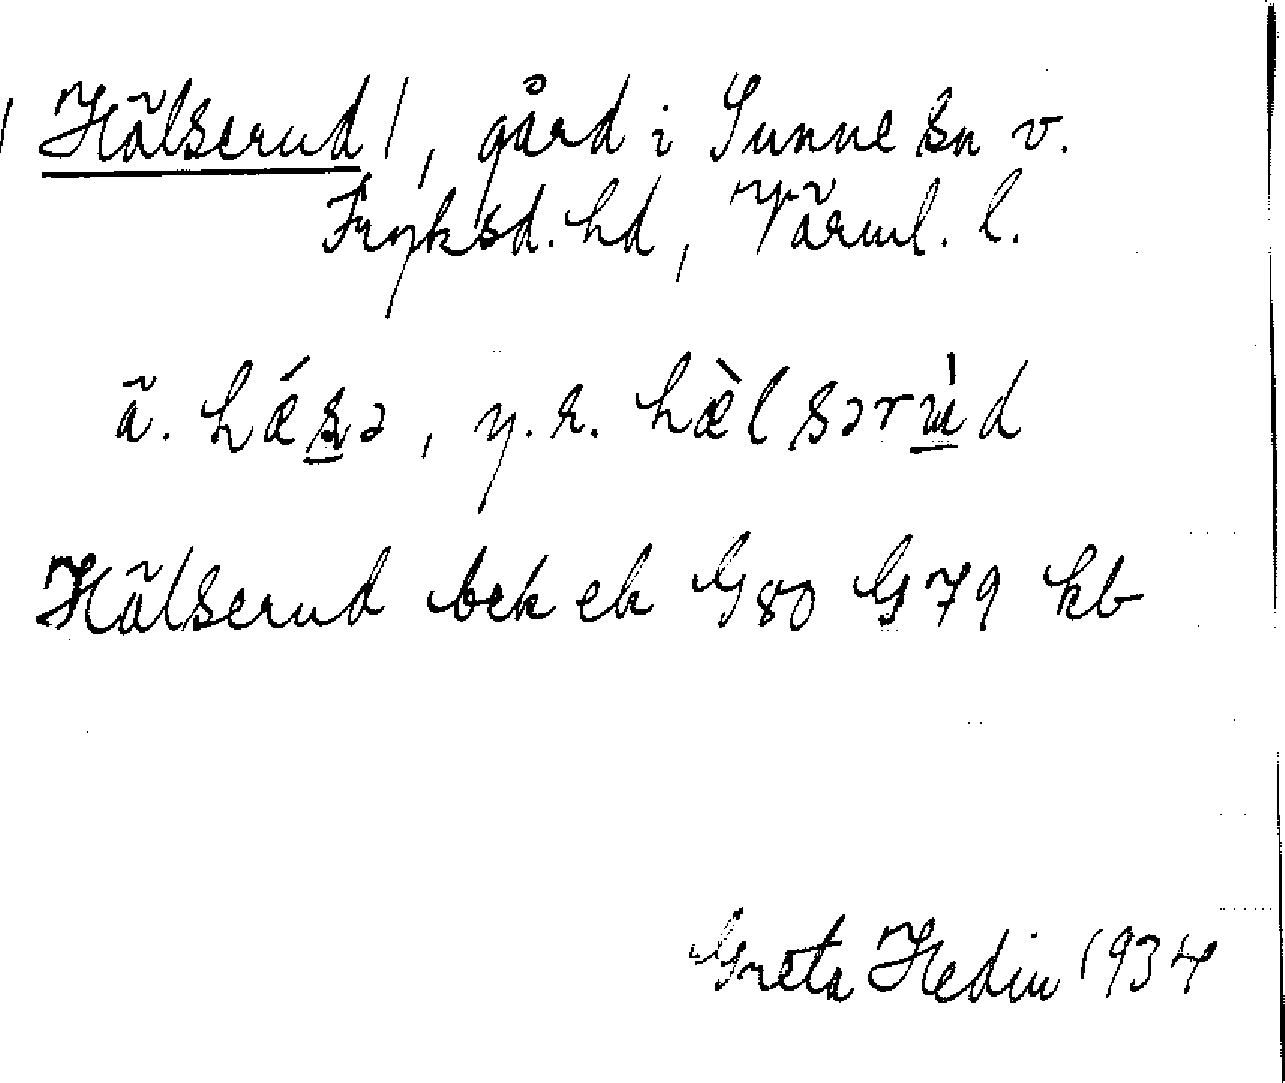 / Hälserud /, gård i Sunne sn v.
Fryksd. hd, Värml. l.
ä. hǽsə, y. r. hæ̀lsərùd
Hälserud bek ek G80 G79 kb
Greta Hedin 1934